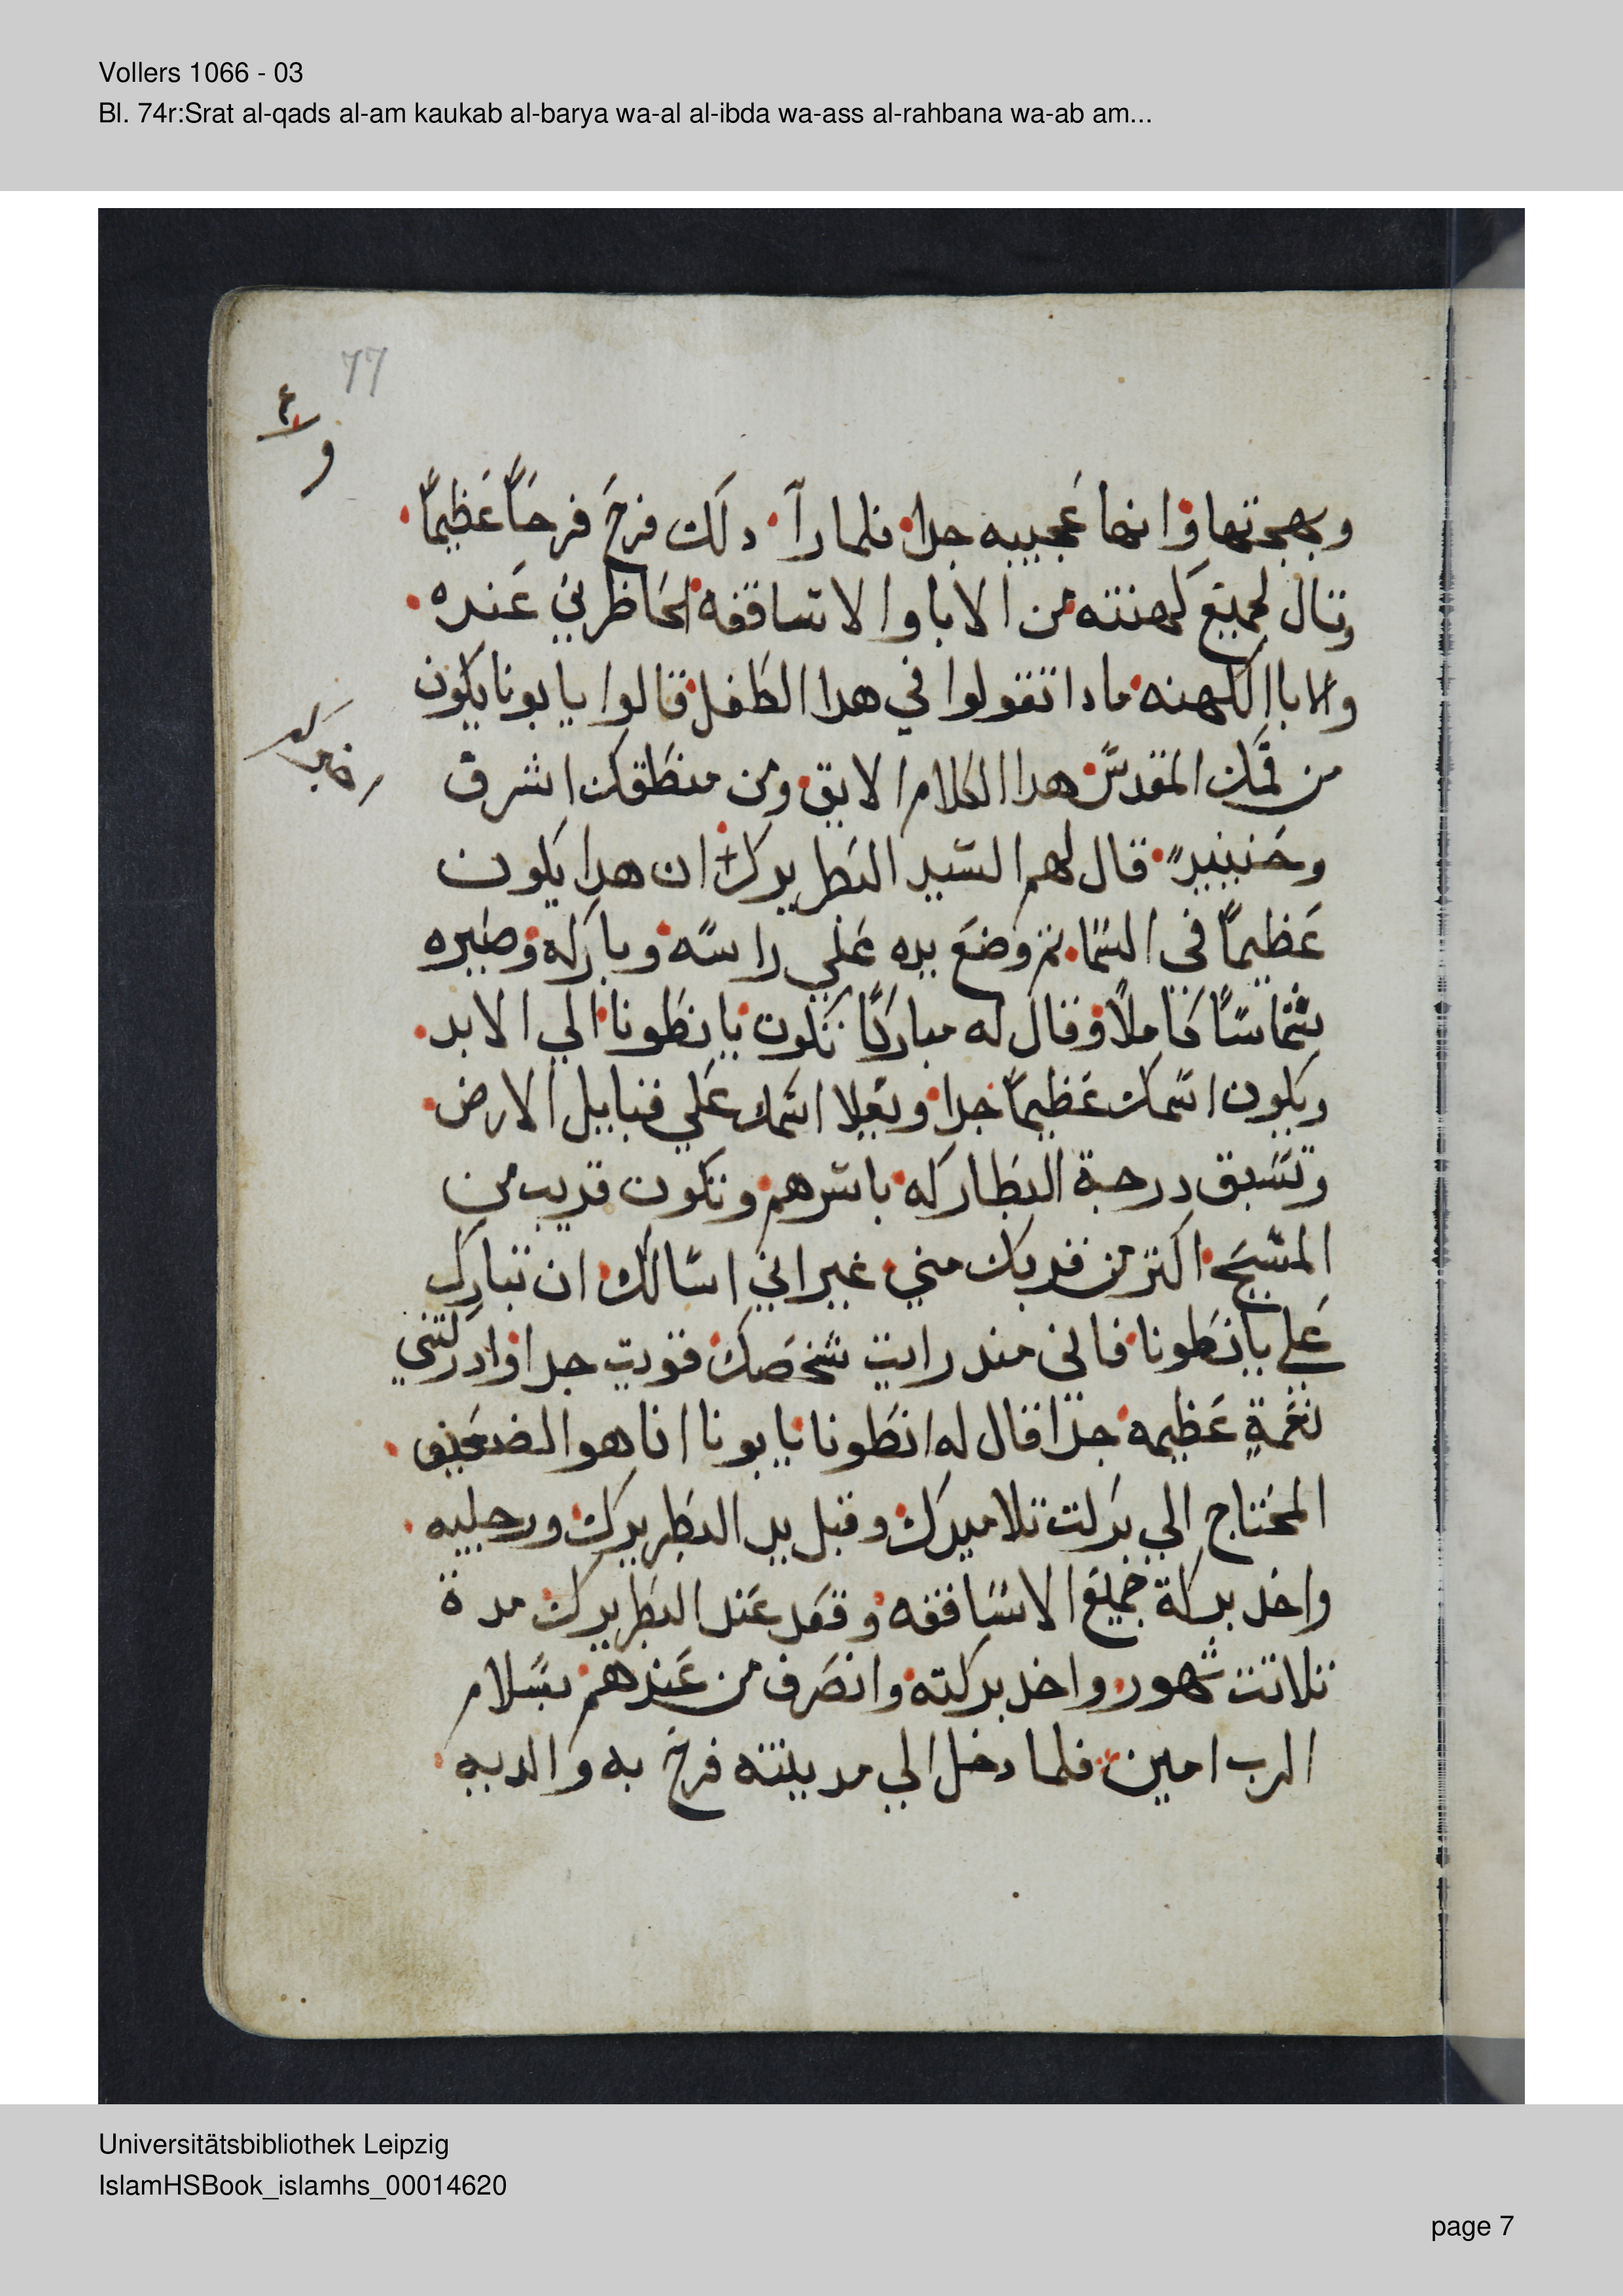 Vollers 1066 - 03
Bl. 74r:Srat al-qads al-am kaukab al-barya wa-al al-ibda wa-ass al-rahbana wa-ab am...
77
وبهجتها وانها عجيبه جدا فلما رآ دلك فرح فرحاً عظيماً
وقال لجميع كهنته من الابا والاساقفه الحاظرين عنده
والابا الكهنه مادا تقولوا في هدا الطفل قالوا يا بونا يكون
من فمك المقدس هدا الكلام الايق ومن منطقك اشرق
وحنييدٍ قال لهم السيد البطريرك ان هدا يكون
عظيماً في السما تم وضع يده علي راسه وباركه وصيره
شماساً كاملاً وقال له مباركاً تكون يا نطونا الي الابد
ويكون اسمك عظيماً جدا ويعلا اسمك علي قبايل الارض
وتسبق درجة البطاركه باسرهم وتكون قريب من
المسيح اكتر من قربك مني غير اني اسالك ان تبارك
علي يا نطونا فاني مند رايت شخصك قويت جدا وادركتني
نعمةٍ عظيمه جدا قال له انطونا يا بونا انا هو الضعيف
المحتاج الي بركت تلاميدك وقبل يد البطريرك ورجليه
واخد بركة جميع الاساقفه وقعد عند البطريرك مدة
تلاتت شهور واخد بركته وانصرف من عندهم بسلام
الرب امين فلما دخل الي مدينته فرح به والديه
Universitätsbibliothek Leipzig
IslamHSBook_islamhs_00014620
page 7